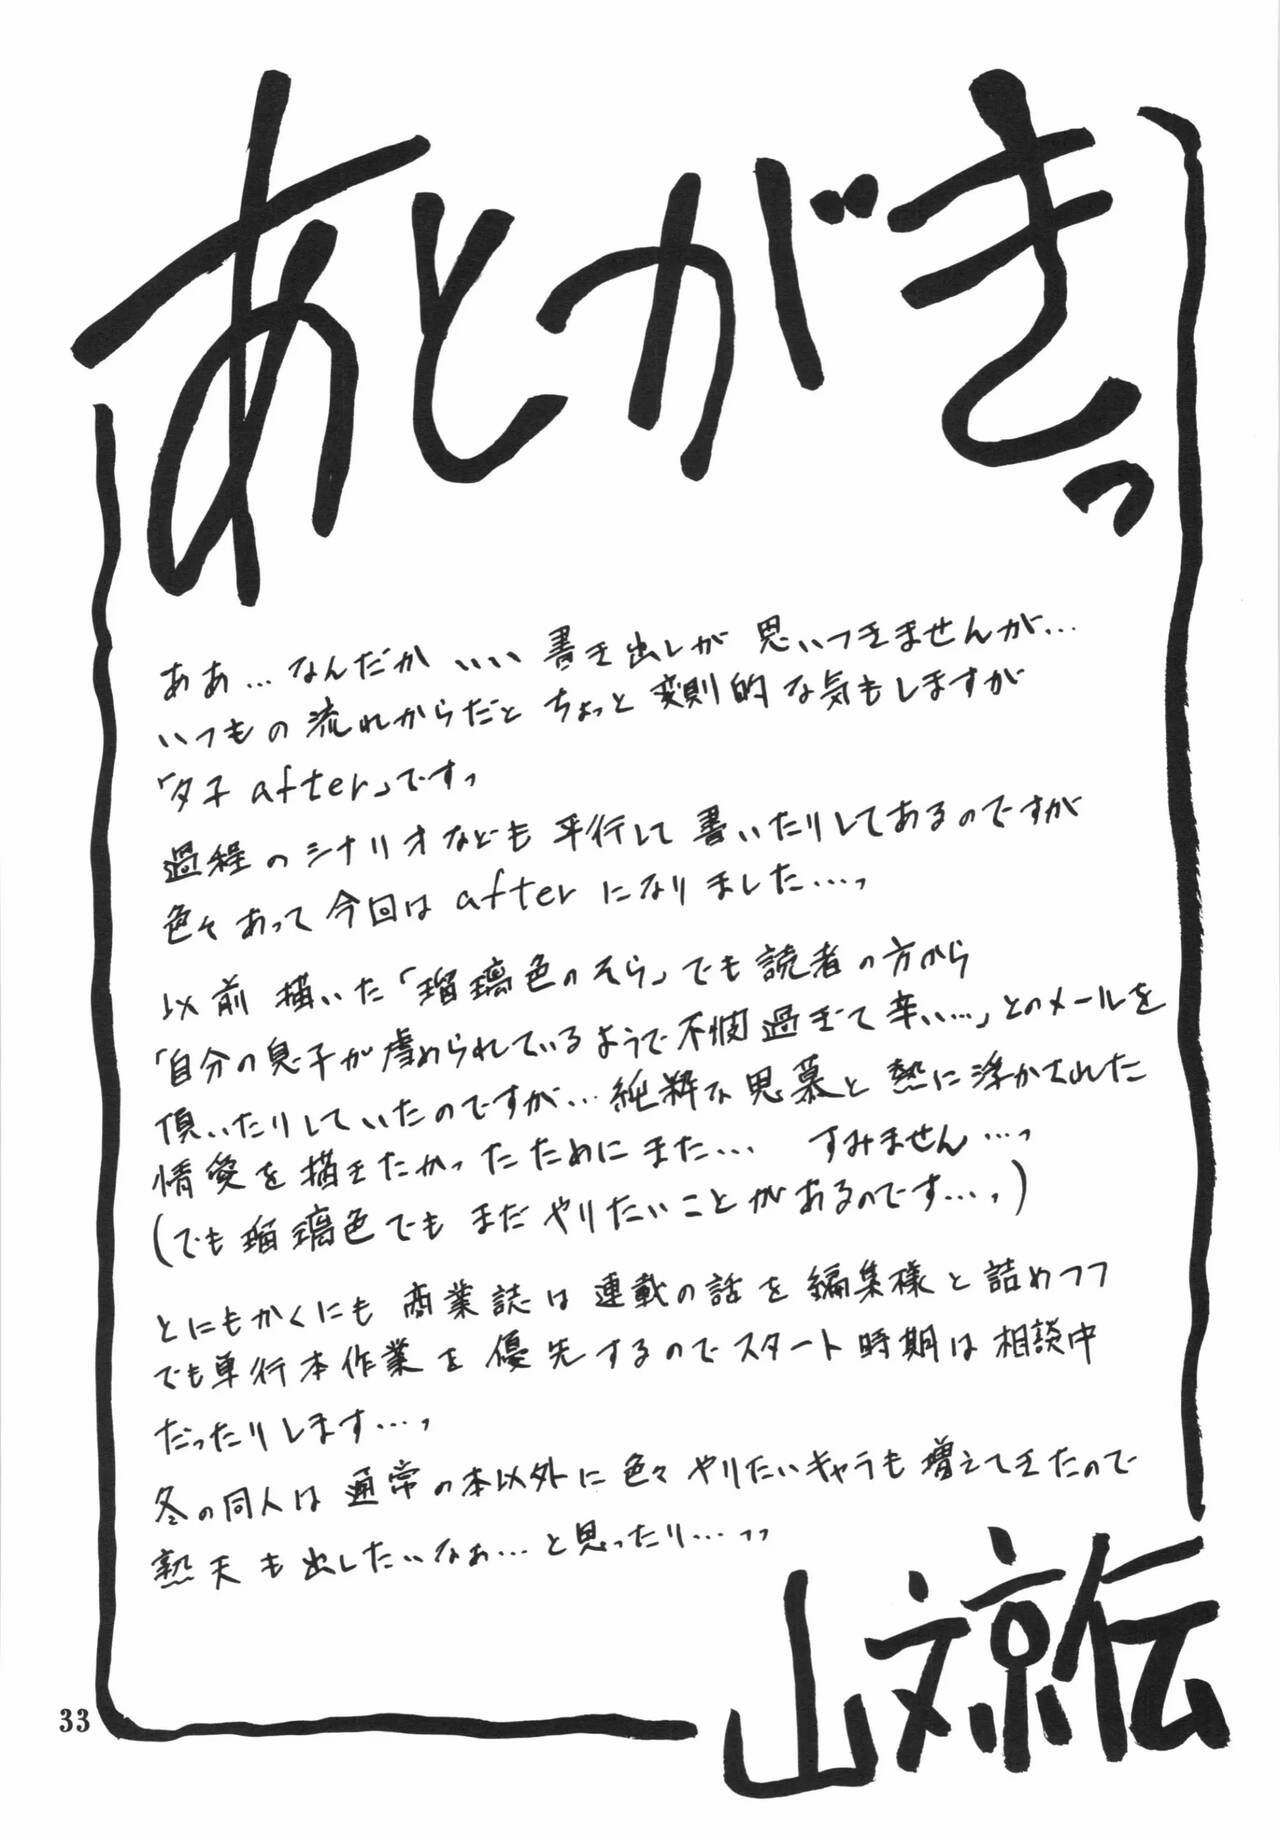 あとがきっ
ああ…なんだか いい 書き出しが 思いつきませんが…
いつもの流れからだと ちょっと 変則的な気もしますが
「夕子 after」ですっ
過程のシナリオなども 平行して 書いたりしてあるのですが
色々あって今回は after になりました…っ
以前 描いた「瑠璃色のそら」でも 読者の方から
「自分の息子が虐められているようで不憫過ぎて辛い…」とのメールを
頂いたりしていたのですが…純粋な思慕と 熱に浮かされた
情愛を描きたかったためにまた… すみません…っ
(でも瑠璃色でも まだ やりたいことがあるのです…っ)
とにもかくにも 商業誌は 連載の話を 編集様と 詰めつつ
でも単行本作業を 優先するのでスタート時期は 相談中
だったりします…っ
冬の同人は 通常の本以外に 色々 やりたいキャラも 増えてきたので
熱天も出したいなぁ…と思ったり…っっ
山文京伝
33